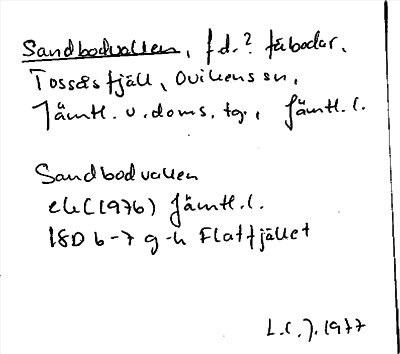 Sandbodvallen, f.d.? fäbodar,
Tossåsfjäll, Ovikens sn,
Jämtl. v. doms. tg., Jämtl. l.
Sandbodvallen
ek (1976) Jämtl. l.
18D 6-7 g-h Flatfjället
L.C.J. 1977